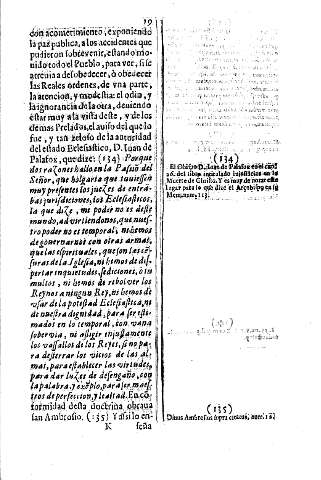 19
con acometimiento, exponiendo
la paz publica, a los accidentes que
pudieron sobrevenir, estando mo-
uido todo el Pueblo, para ver, si se
atreuia a desobedecer, ò obedecer
las Reales ordenes, de vna parte,
la atencion, y modestia: el odio, y
la ignorancia de la otra, deuiendo
estar muy a la vista deste, y de los
demas Prelados, el auiso del que lo
fue, y tan zeloso de la autoridad
del estado Eclesiastico, D. Iuan de
Palafox, que dize: (134) Porque
dos razones hallo en la Pasion del
Señor, que holgaria que tuuiessen
muy presentes los juezes de entra-
bas jurisdiciones, los Eclesiasticos,
la que dize, mi poder no es deste
mundo, advirtiendonos, que nues-
tro poder no es temporal, ni hemos
de governarnos con otras armas,
que las espirituales, que son las cen-
suras de la Iglesia, ni hemos de dis-
pertar inquietudes, sediciones, ò tu
multos, ni hemos de rebolver los
Reynos a ningun Rey, ni hemos de
vsar de la potestad Eclesiastica, ni
de nuestra dignidad, para ser esti-
mados en lo temporal, con vana
sobervia, ni afligir injustamente
los vassallos de los Reyes, si no pa-
ra desterrar los vicios de las al-
mas, para establecer las virtudes,
para dar luzes de desengaño, con
la palabra, y exẽplo, para ser maes-
tros de perfeccion, y lealtad. En cõ
formidad desta doctrina obraua
san Ambrosio. (135) Y assi lo en-
K seña
(134)
El Obispo D. Iuan de Palafox en el cap.
26. del libro intitulado injusticias en la
Muerte de Christo. Y es muy de notar este
lugar para lo que dize el Arçobispo en su
Mem. num. 113.
(135)
Diuus Ambrosius supra citatus, num. 127.